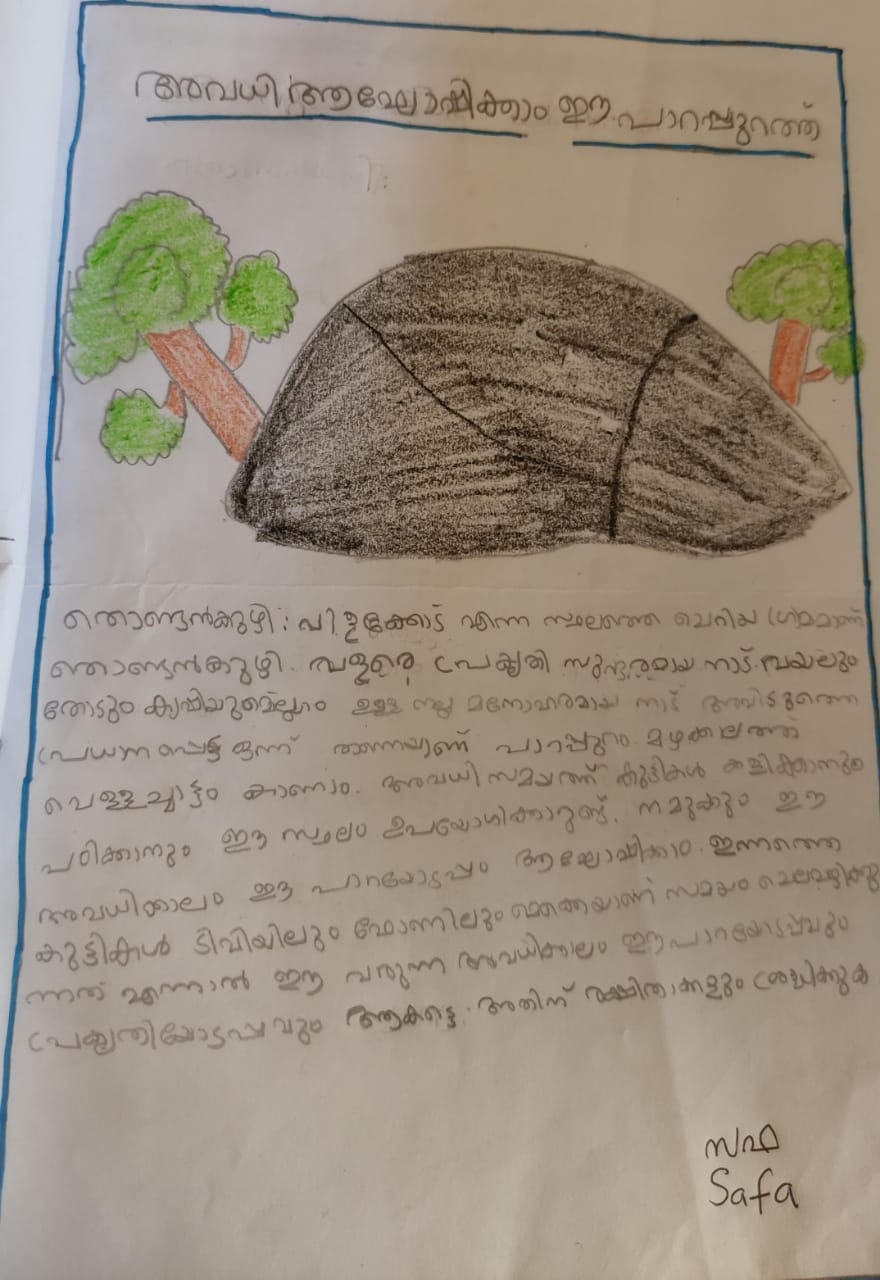 അവധി ആഘോഷിക്കാം ഈ പാറപ്പുറത്ത്
തൊണ്ടൻകുഴി: പിള്ളക്കോട് എന്ന സ്ഥലത്തെ ചെറിയ ഗ്രാമമാണ്
ഞൊണ്ടൻകുഴി. വളരെ പ്രകൃതി സുന്ദരമായ നാട്. വയലും
തോടും കൃഷിയുമെല്ലാം ഉള്ള നല്ല മനോഹരമായ നാട് അവിടുത്തെ
പ്രധാനപ്പെട്ട ഒന്ന് തന്നെയാണ് പാറപ്പുറം. മഴക്കാലത്ത്
വെള്ളച്ചാട്ടം കാണാം. അവധി സമയത്ത് കുട്ടികൾ കളിക്കാനും
പഠിക്കാനും ഈ സ്ഥലം ഉപയോഗിക്കാറുണ്ട്. നമുക്കും ഈ
അവധിക്കാലം ഈ പാറയോടപ്പം ആഘോഷിക്കാം. ഇന്നത്തെ
കുട്ടികൾ ടിവിയിലും ഫോണിലുമൊക്കെയാണ് സമയം ചെലവഴിക്കു
ന്നത് എന്നാൽ ഈ വരുന്ന അവധിക്കാലം ഈ പാറയോടപ്പവും
പ്രകൃതിയോടപ്പവും ആകട്ടെ. അതിന് രക്ഷിതാക്കളും ശ്രദ്ധിക്കുക
സഫ
Safa